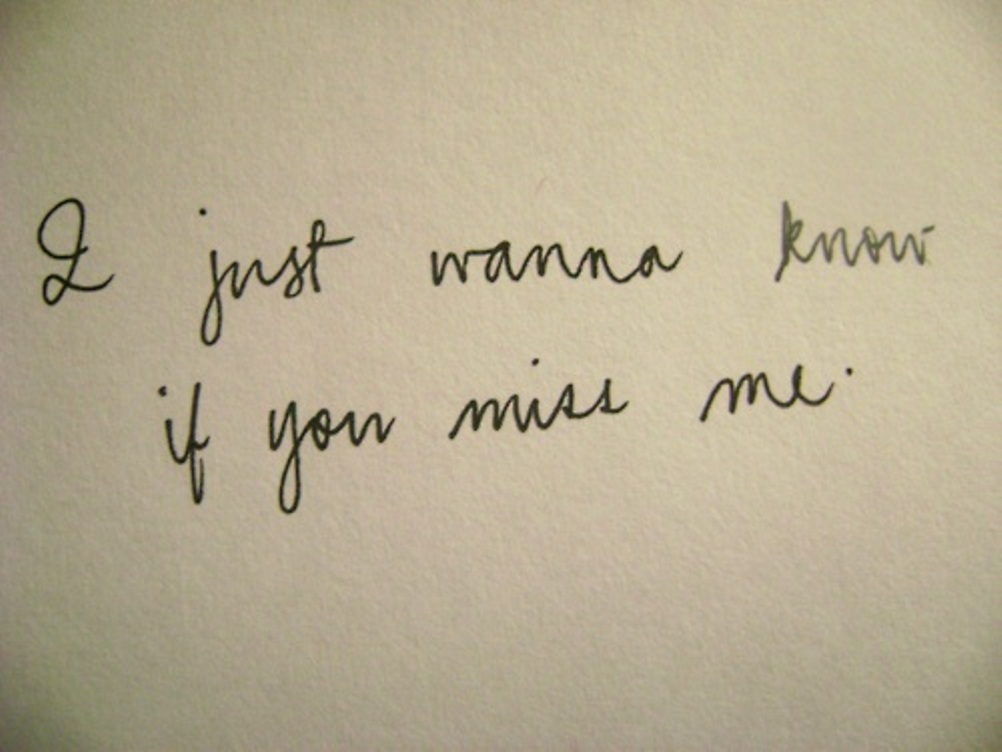 I just wanna know
if you miss me.